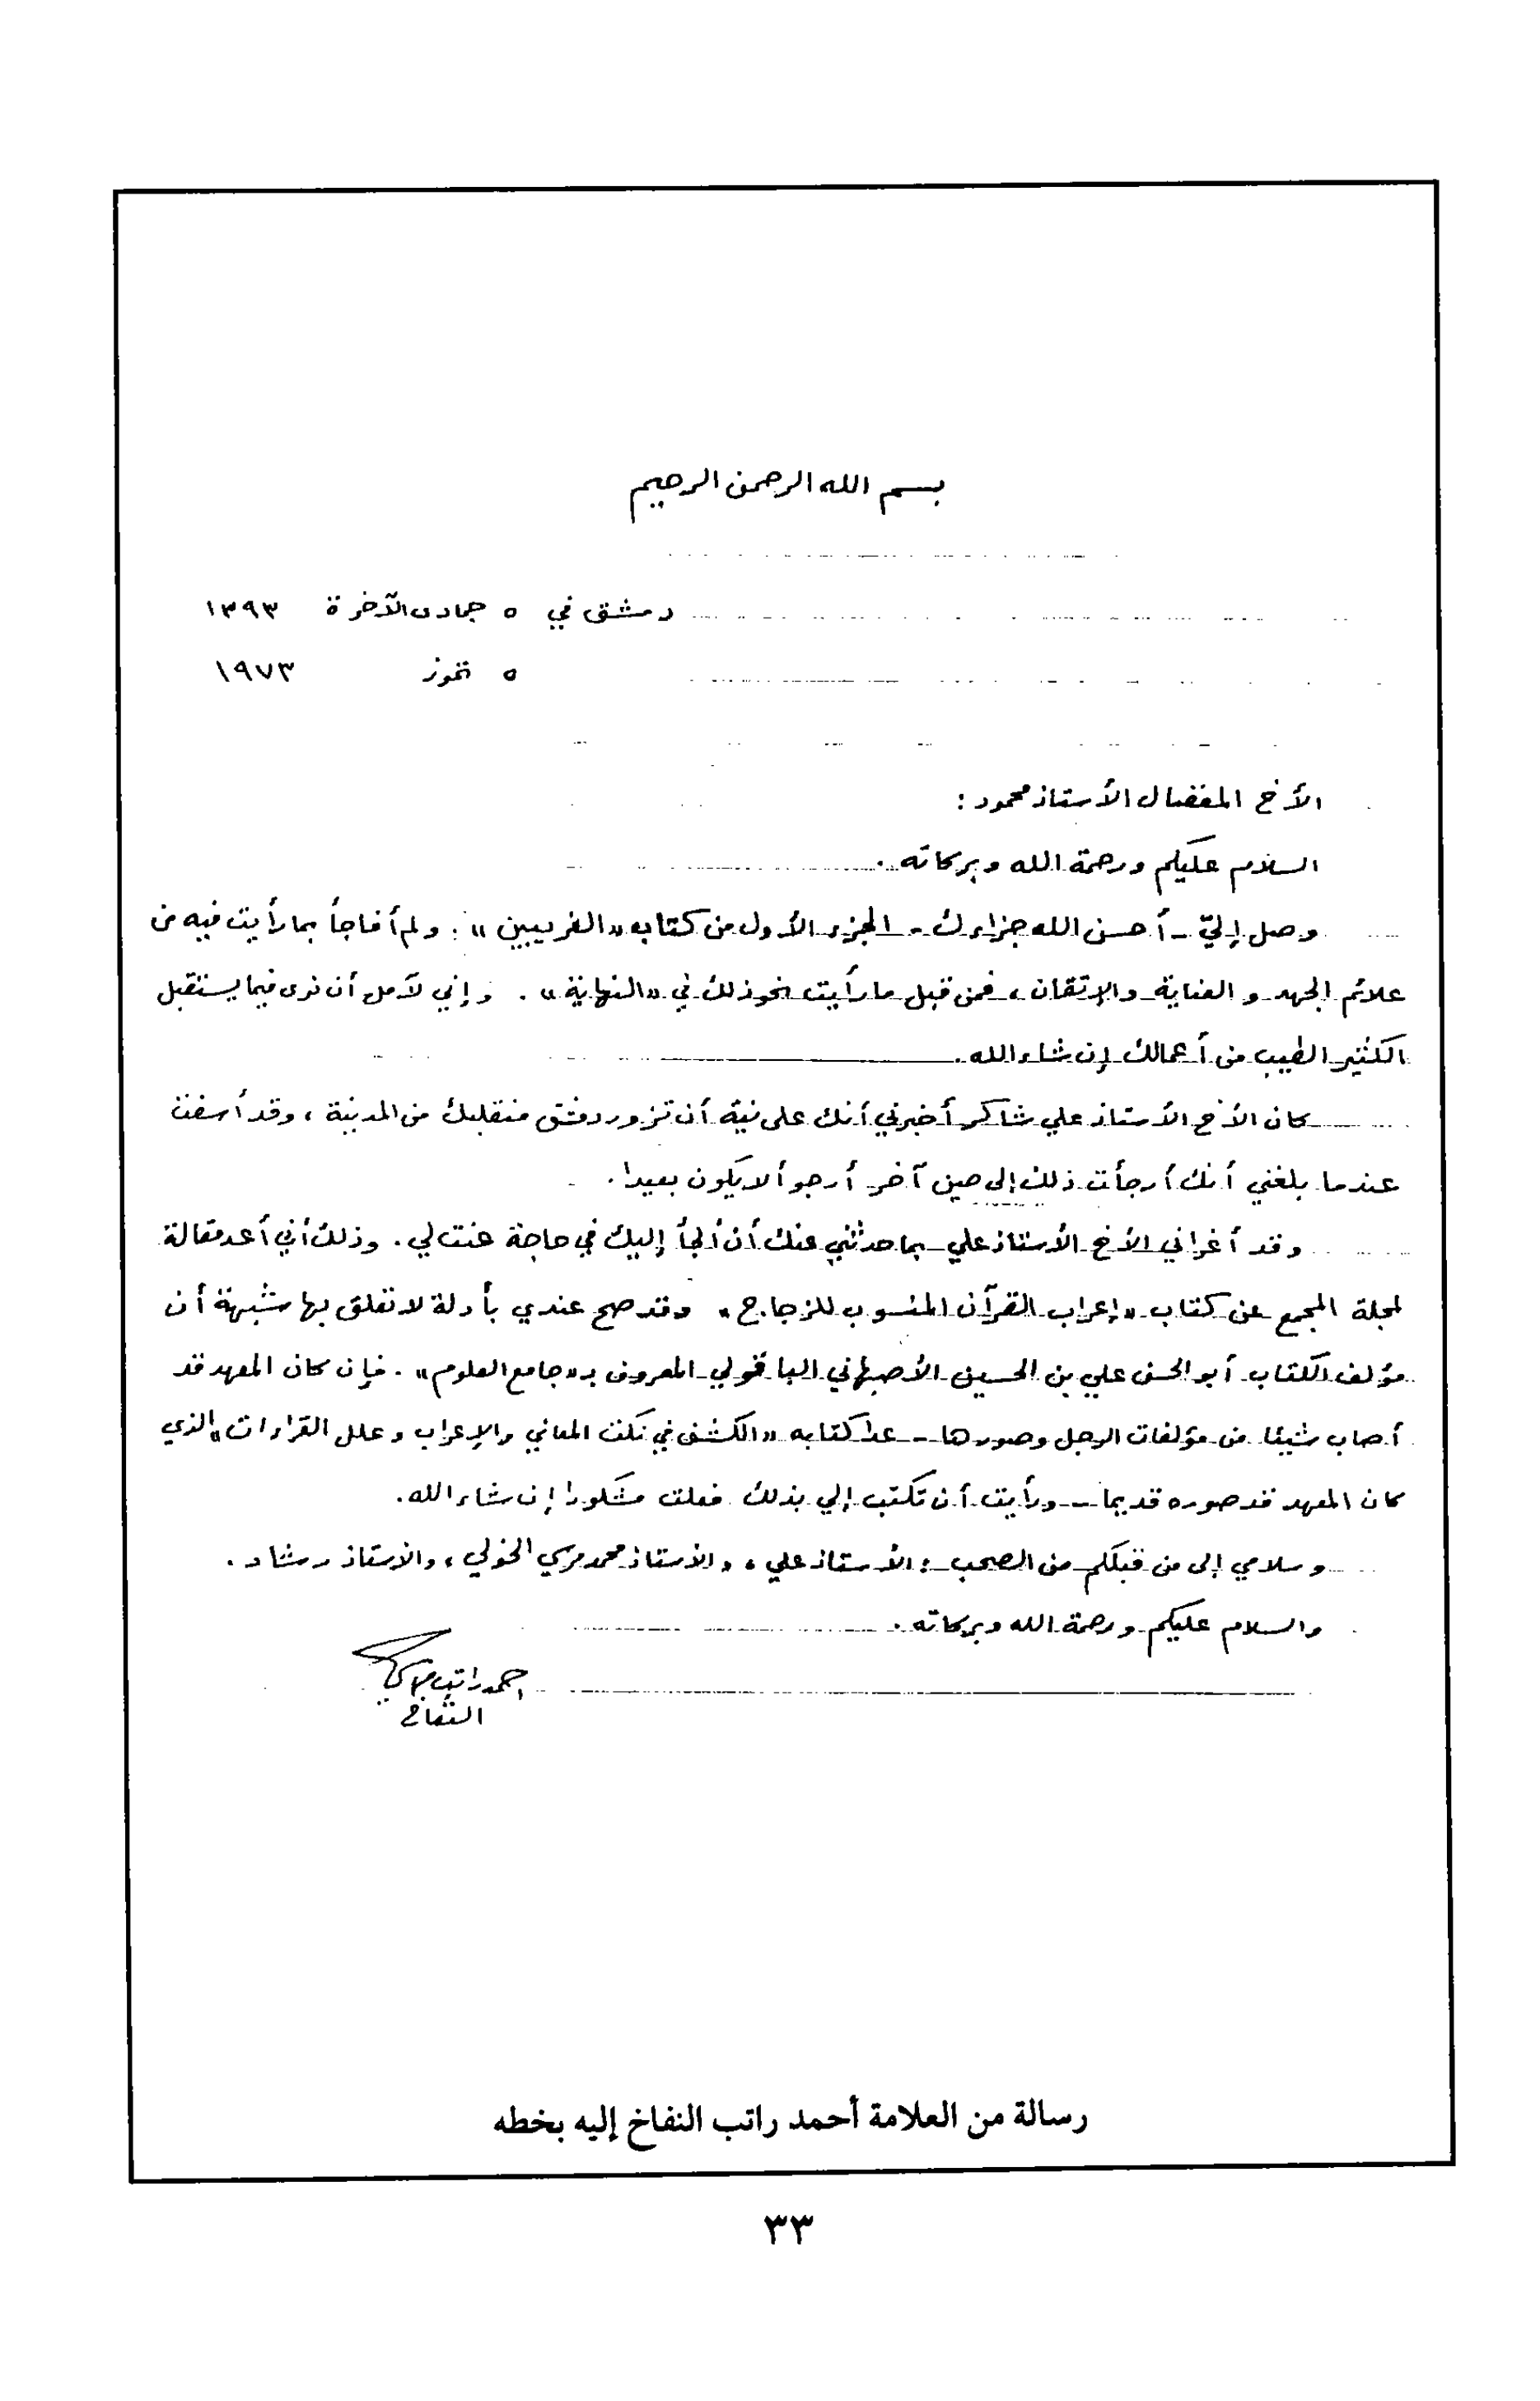 بسم الله الرحمن الرحيم
دمشق في ٥ جمادى الآخرة ١٣٩٣
٥ تموز ١٩٧٣
الأخ المفضال الأستاذ محمود :
السلام عليكم ورحمة الله وبركاته .
وصل إليّ - أحسن الله جزاءك - الجزء الأول من كتاب « الغريبين » . ولم أفاجأ بما رأيت فيه من
علائم الجهد والعناية والإتقان ، فمن قبل ما رأيت نحو ذلك في « النهاية » . وإني لآمل أن نرى فيما يستقبل
الكثير الطيب من أعمالك إن شاء الله .
كان الأخ الأستاذ علي شاكر أخبرني أنك على نية أن تزور دمشق منقلبك من المدينة ، وقد أسفت
عندما بلغني أنك أرجأت ذلك إلى حين آخر أرجو ألا يكون بعيدا .
وقد أغراني الأخ الأستاذ علي بما حدثني عنك أن ألجأ إليك في حاجة عنت لي . وذلك أني أعد مقالة
لمجلة المجمع عن كتاب « إعراب القرآن المنسوب للزجاج » وقد صح عندي بأدلة لا تعلق بها شبهة أن
مؤلف الكتاب أبو الحسن علي بن الحسين الأصبهاني الباقولي المعروف بـ « جامع العلوم » . فإن كان المعهد قد
أصاب شيئا من مؤلفات الرجل وصورها - عدا كتابه « الكشف في نكت المعاني والإعراب وعلل القراءات » الذي
كان المعهد قد صوره قديما - ورأيت أن تكتب إلي بذلك فعلت مشكورا إن شاء الله .
وسلامي إلى من قبلكم من الصحب : الأستاذ علي ، والأستاذ محمد مرسي الخولي ، والأستاذ رشاد .
والسلام عليكم ورحمة الله وبركاته .
احمد راتب
النفاخ
رسالة من العلامة أحمد راتب النفاخ إليه بخطه
٣٣